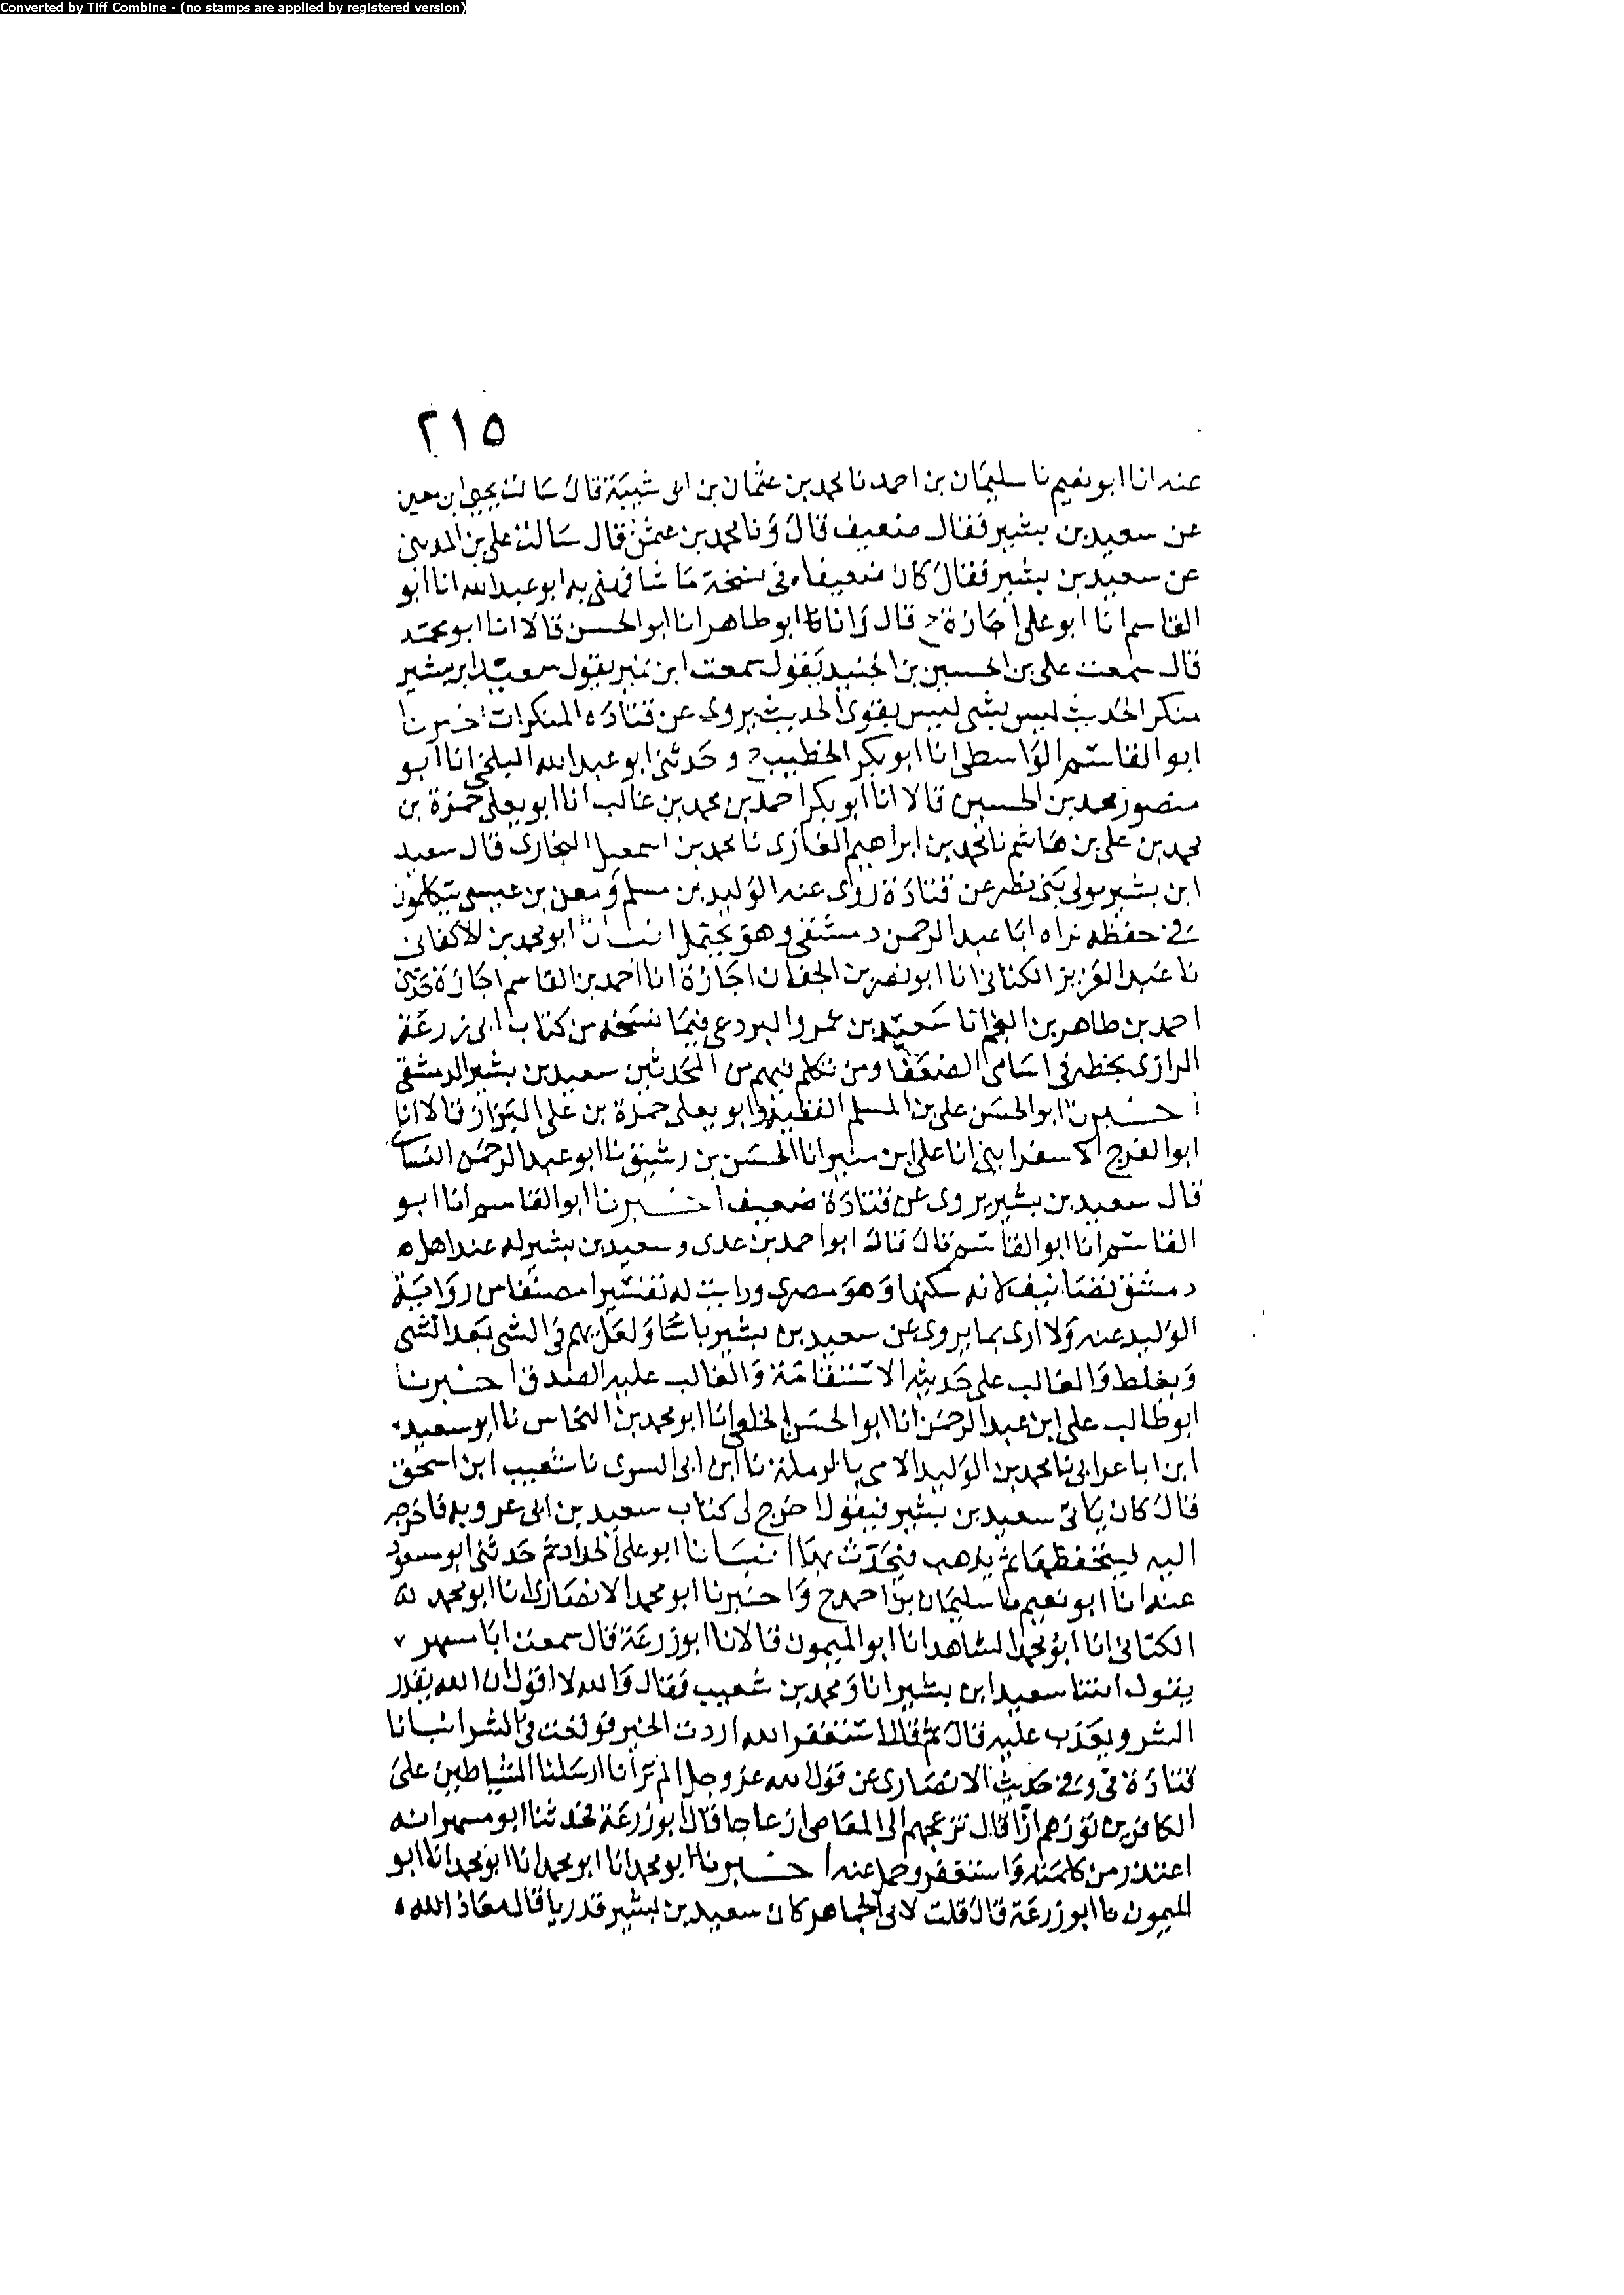 Converted by Tiff Combine - (no stamps are applied by registered version)
٢١٥
عنه انا ابو نعيم نا سليمان بن احمد نا محمد بن عثمان بن ابى شيبة قال سالت يحيى ابن معين
عن سعيد بن بشير فقال ضعيف قال ونا محمد بن عثمن قال سالت على بن المدينى
عن سعيد بن بشير فقال كان ضعيفا، فى نسخة ما شافهنى به ابو عبد الله انا ابو
القاسم انا ابو على اجازة ح قال وانا ابو طاهر انا ابو الحسن قالا انا ابو محمد
قال سمعت على بن الحسين بن الجنيد يقول سمعت ابن نمير يقول سعيد ابن بشير
منكر الحديث ليس بشى ليس بقوى الحديث يروى عن قتاده المنكرات اخبرنا
ابو القاسم الواسطى انا ابو بكر الخطيب ح و حدثنى ابو عبد الله البلخى انا ابو
منصور محمد بن الحسين قالا انا ابو بكر احمد بن محمد بن غالب انا ابو يعلى حمزة بن
محمد بن على بن هاشم نا محمد بن ابراهيم الغازى نا محمد بن اسمعيل البخارى قال سعيد
ابن بشير مولى بنى نصر عن قتادة روى عنه الوليد بن مسلم ومعن بن عيسى يتكلمون
فى حفظه نراه ابا عبد الرحمن دمشقى وهو يحتمل انبانا ابو محمد بن الاكفانى
نا عبد العزيز الكتانى انا ابو نصر بن الجبان اجازة انا احمد بن القاسم اجازة حدثنى
احمد بن طاهر بن النجم نا سعيد بن عمرو البردعى فيما نسخه من كتاب ابى زرعة
الرازى بخطه فى اسامى الضعفا ومن تكلم فيهم من المحدثين سعيد بن بشير الدمشقى
اخبرنا ابو الحسن على بن المسلم الفقيه وابو يعلى حمزة بن على البزاز قالا انا
ابو الفرج الاسفراينى انا على ابن منير انا الحسن بن رشيق نا ابو عبد الرحمن النساى
قال سعيد بن بشير يروى عن قتادة ضعيف اخبرنا ابو القاسم انا ابو
القاسم انا ابو القاسم قال قال ابو احمد بن عدى وسعيد بن بشير له عند اهل
دمشق تصانيف لانه سكنها وهو بصرى ورايت له تفسيرا مصنفا من رواية
الوليد عنه ولا ارى بما يروى عن سعيد بن بشير باسا ولعل يهم فى الشى بعد الشى
ويغلط والغالب على حديثه الاستقامة والغالب عليه الصدق اخبرنا
ابو طالب على ابن عبد الرحمن انا ابو الحسن الخلعى انا ابو محمد بن النحاس نا ابو سعيد
ابن اباعرابى نا محمد بن الوليد الامى بالرملة نا ابن ابى السرى نا شعيب ابن اسحق
قال كان ياتى سعيد بن بشير فيقول اخرج لى كتاب سعيد بن ابى عروبه فاخرجه
اليه ليتحفظها ثم يذهب فيحدث بهذا انبانا ابو على الحداد ثم حدثنى ابو مسعود
عنه انا ابو نعيم نا سليمان بن احمد ح واخبرنا ابو محمد الانصارى انا ابو محمد
الكتانى انا ابو محمد الشاهد انا ابو الميمون قالا نا ابو زرعة قال سمعت ابا مسهر
يقول اتتنا سعيد ابن بشير انا ومحمد بن شعيب فقال والله لا اقول ان الله يقدر
الشر ويعذب عليه قال ثم قال استغفر الله اردت الخير فوقعت فى الشر انبانا
قتادة فى وفى حديث الانصارى عن قول الله عز وجل الم تر انا ارسلنا الشياطين على
الكافرين تؤزهم ازا قال تزعجهم الى المعاصى ازعاجا قال ابو زرعة فحدثنا ابو مسهر انه
اعتذر من كلمته واستغفر وحمل عنه اخبرنا ابو محمد انا ابو محمد انا ابو محمد انا ابو
الميمون نا ابو زرعة قال قلت لابى الجماهر كان سعيد بن بشير قدريا قال معاذ الله